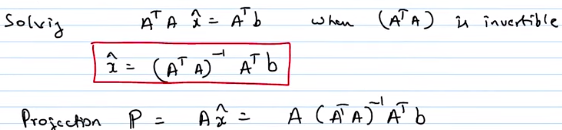 Solvig AᵀA x̂ = Aᵀb when (AᵀA) is invertible
x̂ = (AᵀA)⁻¹ Aᵀb
Projection P = Ax̂ = A (AᵀA)⁻¹Aᵀb